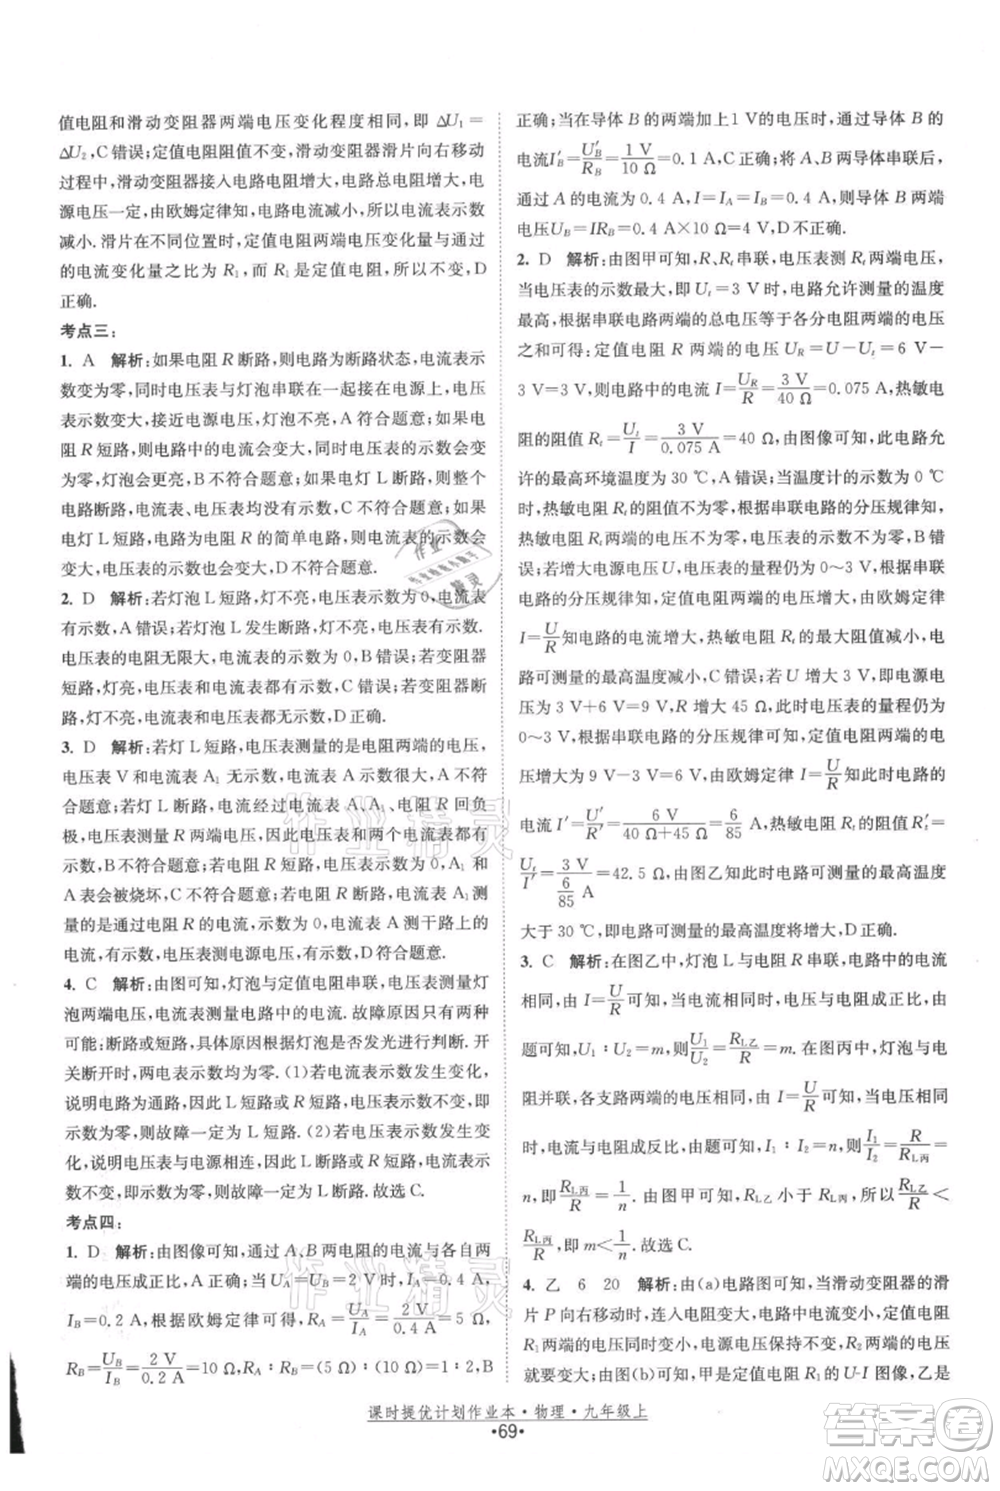 值电阻和滑动变阻器两端电压变化程度相同,即 ΔU₁=
ΔU₂,C 错误;定值电阻阻值不变,滑动变阻器滑片向右移动
过程中,滑动变阻器接入电路电阻增大,电路总电阻增大,电
源电压一定,由欧姆定律知,电路电流减小,所以电流表示数
减小.滑片在不同位置时,定值电阻两端电压变化量与通过
的电流变化量之比为 R₁,而 R₁ 是定值电阻,所以不变,D
正确.
考点三:
1. A 解析:如果电阻 R 断路,则电路为断路状态,电流表示
数变为零,同时电压表与灯泡串联在一起接入电路,电压表
示数变大,接近电源电压,灯泡不亮,A 符合题意;如果电
阻 R 短路,则电路中的电流会变大,同时电压表的示数会变
为零,灯泡不亮,B 不符合题意;如果灯泡 L 断路,则整个
电路断路,电流表示数为零,灯泡不亮,C 不符合题意;如果
电灯 L 短路,则电路为 R 的简单电路,电流表的示数会变
大,电压表的示数会增大,D 不符合题意.
2. D 解析:若灯泡 L 短路,灯不亮,电压表示数为 0,电流表
有示数,A 错误;若灯泡 L 发生断路,灯不亮,电压表有示数,
因电压表电阻无限大,电流表示数为 0,B 错误;若变阻器
短路,灯亮,电压表和电流表有示数,C 错误;若变阻器断
路,灯不亮,电流表和电压表都无示数,D 正确.
3. D 解析:若灯 L 短路,电压表测量的是电阻两端的电压,
电压表 V 和电流表 A₁ 无示数,A 示数很大,A 不符合
题意;若灯 L 断路,电流经过电流表 A、A₁、电阻 R 回到负
极,电压表测量 R 两端电压,因此电压表和两个电流表均有
示数,B 不符合题意;若电阻 R 短路,电流表 A、A₁ 与电源
直接相连,则电路中电流过大,电流表 A 和电流表 A₁ 示数
过大会被烧坏,C 不符合题意;若电阻 R 断路,电流表 A₁ 测
量的是通过电阻 R 的电流,示数为 0,电流表 A 测干路上的
电流,有示数,电压表测电源电压,有示数,D 符合题意.
4. C 解析:由图可知,灯泡与定值电阻串联,电压表测量灯
泡两端电压,电流表测量电路中的电流.故障原因只有两种
可能:断路或短路,具体原因根据灯泡是否发光进行确定.开
关断开时,两电表示数均为零.(1)若电流表示数发生变化,
说明电路为通路,因此 L 短路或者 R 短路;由于电压表示数
示数为零,则故障一定为 L 短路.(2)若电压表示数发生变
化,说明电压表与电源相连,因此 L 断路或 R 短路;由于电流
表示数不变,则故障一定为 L 断路.故选 C.
考点四:
1. D 解析:由图像可知,通过 A、B 两导体的电流与各自两
端的电压成正比,A 正确;当 U_A=U_B=2 V 时,I_A=0.4 A,
I_B=0.2 A,根据欧姆定律,可得 R_A=U_A/I_A=2 V/0.4 A=5 Ω,
R_B=U_B/I_B=2 V/0.2 A=10 Ω,R_A∶R_B=(5 Ω)∶(10 Ω)=1∶2,B
正确;当在导体 B 的两端加上 1 V 的电压时,通过导体 B 的
电流 I′_B=U′_B/R_B=1 V/10 Ω=0.1 A,C 正确;将 A、B 两导体串联后,
通过 A 的电流为 0.4 A,I=I_A=I_B=0.4 A,导体 B 两端
电压 U_B=IR_B=0.4 A×10 Ω=4 V,D 不正确.
2. D 解析:由图甲可知,R、Rₜ 串联,电压表测 Rₜ 两端电压.
当电压表的示数最大,即 Uₜ=3 V 时,电路允许测量的温度
最高,根据串联电路两端的总电压等于各分电阻两端的电压
之和可得:定值电阻 R 两端的电压 U_R=U-Uₜ=6 V-
3 V=3 V,则电路中的电流 I=U_R/R=3 V/40 Ω=0.075 A,热敏电
阻的阻值 Rₜ=Uₜ/I=3 V/0.075 A=40 Ω,由图像可知,此电路允
许的最高环境温度为 30 ℃,A 错误;
时,热敏电阻 Rₜ 的阻值最大,根据串联电路的分压规律可
知,电压表示数增大,因此电压表示数不是最小的,B 错
误;若把电压表量程改为 0～15 V,
电路的分压规律知,定值电阻两端的电压变小,由欧姆定律
I=U/R知电路的电流增大,热敏电阻 Rₜ 的最大阻值减小,电
路可测量的最高温度减小,C 错误;若 U 增大 3 V,即电源电
压为 3 V+6 V=9 V,R 增大 45 Ω,此时电压表的量程仍为
0～3 V 不变,根据串联电路的分压规律知,定值电阻两端的
电压增大为 9 V-3 V=6 V,由欧姆定律可知此时电路的
电流 I′=U′/R′=6 V/(40 Ω+45 Ω)=6/85 A,热敏电阻 Rₜ 的阻值 R′ₜ=
Uₜ/I′=3 V/(6/85 A)=42.5 Ω,由图乙知此时电路可测量的最高温度
大于 30 ℃,即电路可测量的最高温度将变大,D 正确.
3. C 解析:在图乙中,灯泡 L 与电阻 R 串联,电路中的电流
相同,因为 I=U/R,所以串联时,电压与电阻成正比,由
题可知,U₁∶U₂=m,则U₁/U₂=R_L乙/R=m.在图丙中,灯泡与电
阻并联,各支路两端的电压相同,因为 I=U/R,所以并联
时,电流与电阻成反比,由题可知,I₁∶I₂=n,则I₁/I₂=R/R_L丙=
n,即R_L丙/R=1/n.由图甲可知,R_L乙 小于 R_L丙,所以R_L乙/R<
R_L丙/R,即 m<1/n.故选 C.
4. 乙 6 20 解析:由(a)电路图可知,当滑动变阻器的滑
片 P 向右移动时,连入电阻变大,电路中的电流变小,定值电阻
R₁ 两端的电压也变小;电源电压保持不变,
R₂ 两端的电压变大.由图(b)可知,甲是定值电阻的 U-I 图像,乙是
课时提优计划作业本·物理·九年级上
·69·
作业精灵
作业精灵
答案圈
MXQE.COM